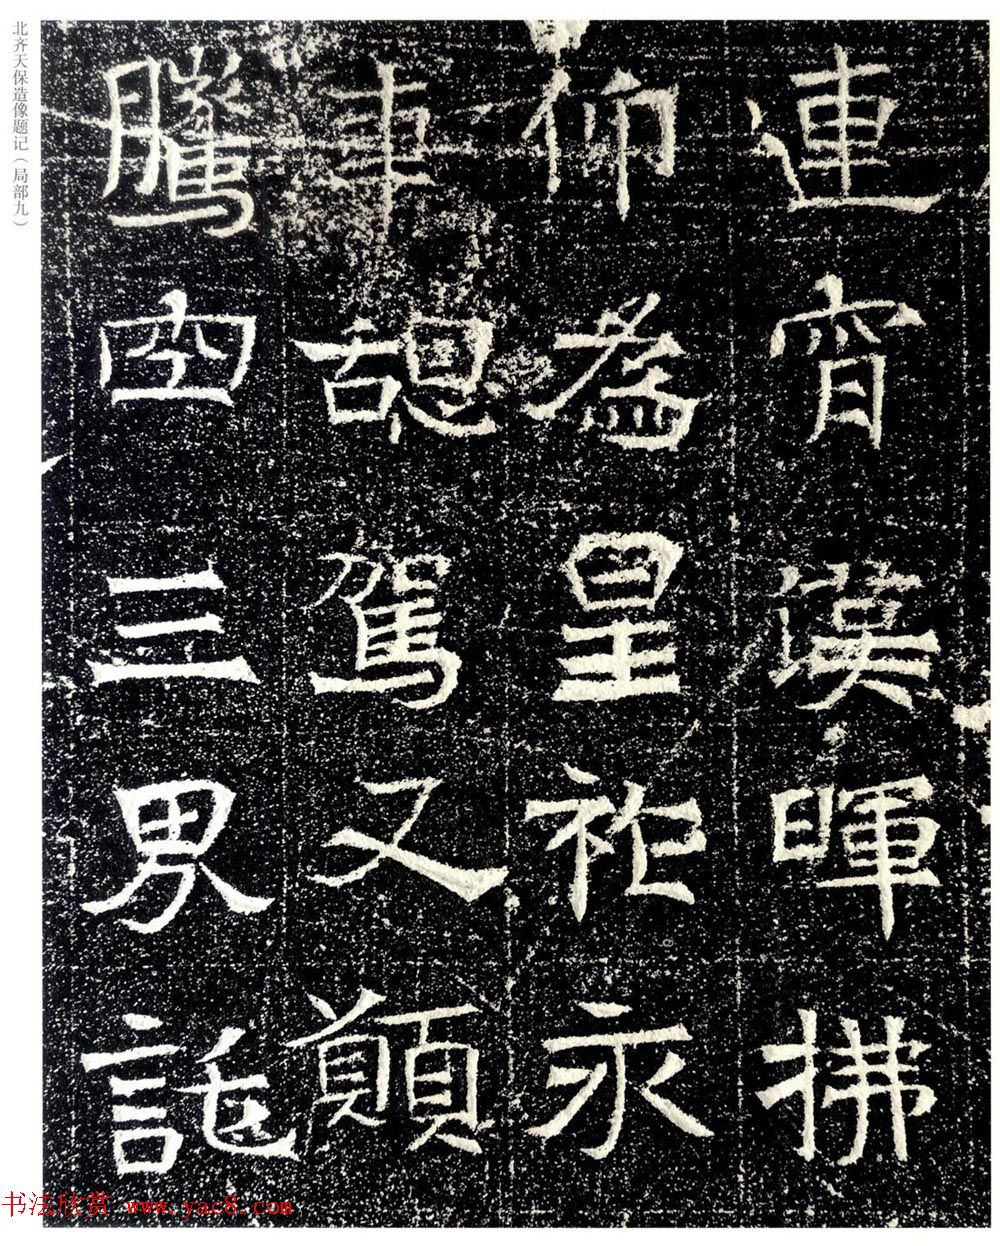 北齐天保造像题记（局部九）
連宵漢暉拂
仰為皇祚永
車憩駕又顛
騰空三男託
书法欣赏 www.yac8.com